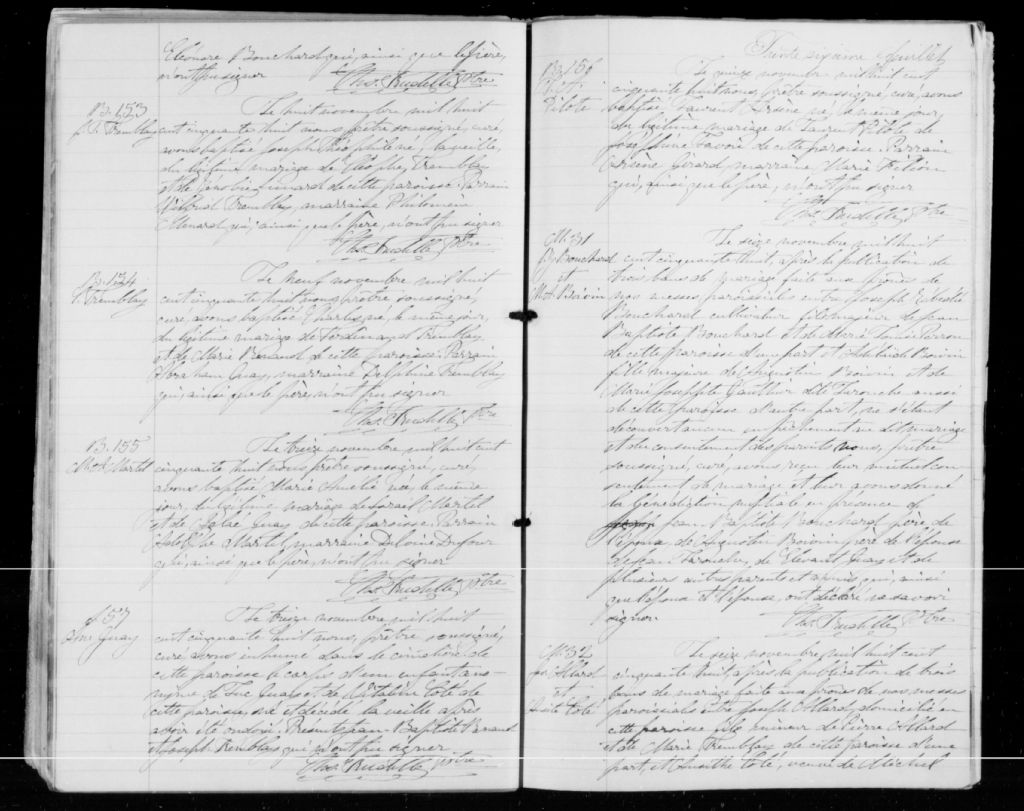 Eléonore Bouchard qui, ainsi que le père,
n'ont pu signer
Ths. Rudelle Ptre
B. 153
J. Tremblay
Le huit novembre mil huit
cent cinquante huit nous prêtre soussigné, curé,
avons baptisé Joseph né la veille,
du légitime mariage de Tremblay
et de de cette paroisse. Parrain
Tremblay, marraine Philomène
Menard qui, ainsi que le père, n'ont pu signer
Ths. Rudelle Ptre
B. 154
Tremblay
Le neuf novembre mil huit
cent cinquante huit nous prêtre soussigné,
curé avons baptisé né, le même jour,
du légitime mariage de Ferdinand Tremblay
et de Marie Renaud de cette paroisse. Parrain
Abraham Guay, marraine Delphine Tremblay
qui, ainsi que le père, n'ont pu signer
Ths. Rudelle Ptre
B. 155
M. A. Martel
Le treize novembre mil huit cent
cinquante huit nous prêtre soussigné, curé,
avons baptisé Marie Amélie née, le même
jour, du légitime mariage de Israel Martel
et de Guay de cette paroisse. Parrain
Martel, marraine Dufour
qui, ainsi que le père, n'ont pu signer
Ths. Rudelle Ptre
S. 57
Guay
Le treize novembre mil huit
cent cinquante huit nous, prêtre soussigné,
curé avons inhumé dans le cimetière de
cette paroisse le corps d'un enfant ano-
nyme de Luc Guay et de Vitaline Coté de
cette paroisse, né et décédé la veille après
avoir été ondoié. Présents Jean-Baptiste
et Joseph Tremblay qui n'ont pu signer
Ths. Rudelle Ptre
Trente sixième feuillet
B. 156
Pilote
Le quinze novembre mil huit cent
cinquante huit nous, prêtre soussigné, curé, avons
baptisé Laurent Arsène né, le même jour,
du légitime mariage de Laurent Pilote et de
Joséphine Savoie de cette paroisse. Parrain
Arsène Girard, marraine Marie Filion
qui, ainsi que le père, n'ont pu signer
Ths. Rudelle Ptre
M. 31
Bouchard
et
M. A. Boivin
Le seize novembre, mil huit
cent cinquante huit, après la publication de
trois bans de mariage faite aux prônes de
nos messes paroissiales entre Joseph
Bouchard cultivateur fils majeur de Jean
Baptiste Bouchard et de Marie Louise Perron
de cette paroisse d'une part et Adelaide Boivin
fille mineure de Augustin Boivin et de
Marie Josephte Gauthier dite Larouche aussi
de cette paroisse d'autre part, ne s'étant
découvert aucun empêchement au dit mariage
et du consentement des parents nous, prêtre
soussigné, curé, avons reçu leur mutuel con
sentement de mariage et leur avons donné
la bénédiction nuptiale en présence de
Jean Baptiste Bouchard père de
l'époux, de Augustin Boivin père de l'épouse
de Jean Larouche, de Guay et de
plusieurs autres parents et amis qui, ainsi
que l'époux et l'épouse, ont déclaré ne savoir
signer
Ths. Rudelle Ptre
M. 32
Jos. Allard
et
Coté
Le seize novembre, mil huit cent
cinquante huit, après la publication de trois
bans de mariage faite aux prônes de nos messes
paroissiales entre Joseph Allard, domicilié en
cette paroisse fils mineur de Pierre Allard
et de Marie Tremblay de cette paroisse d'une
part, et Coté, veuve de Michel